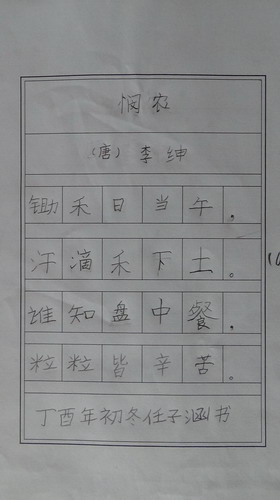 悯农
(唐) 李绅
锄禾日当午。
汗滴禾下土。
谁知盘中餐。
粒粒皆辛苦。
丁酉年初冬任子涵书